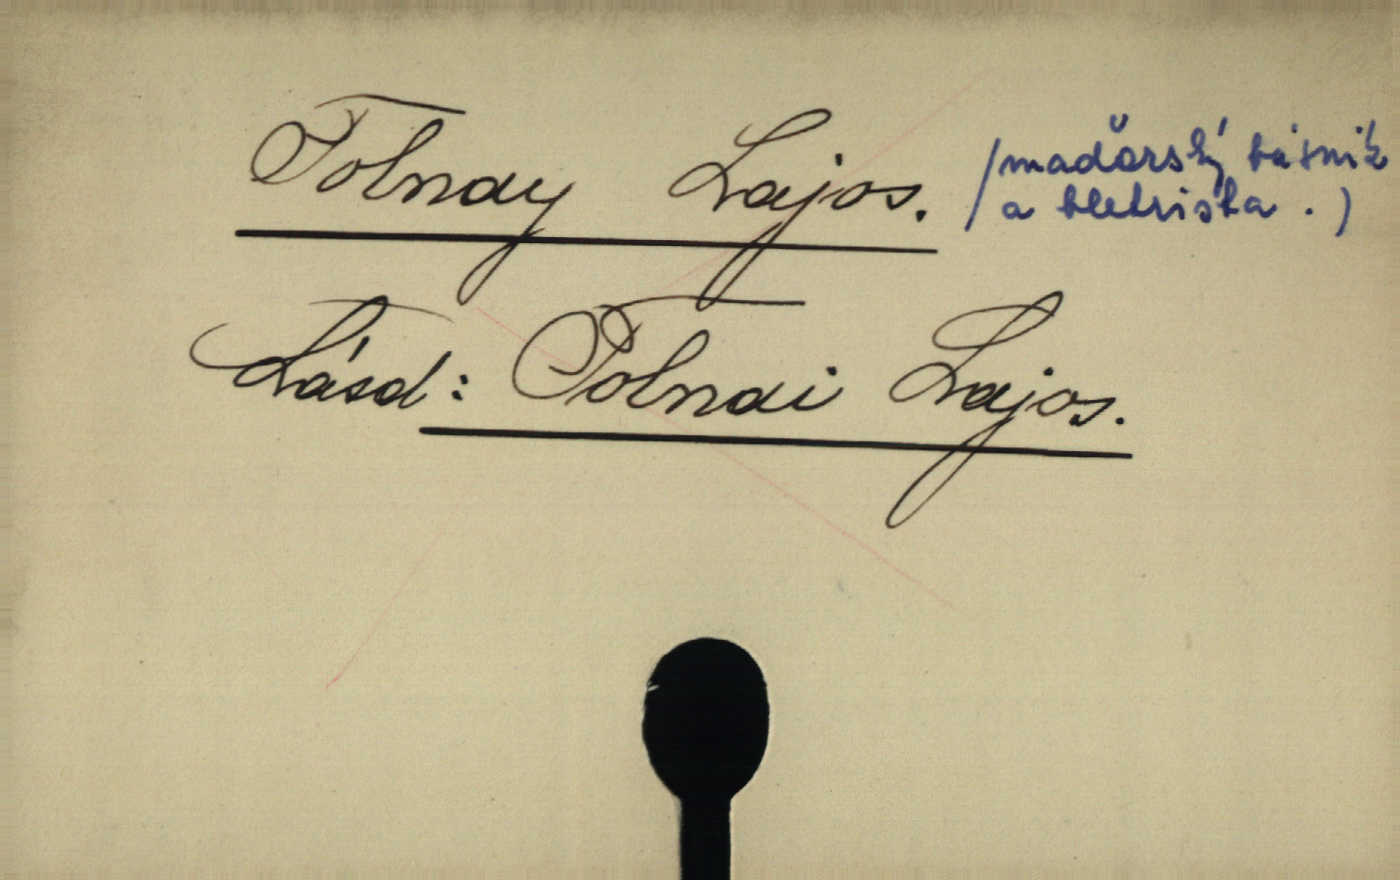 Tolnay Lajos. /maďarský básnik
a beletrista.)
Lásd: Tolnai Lajos.